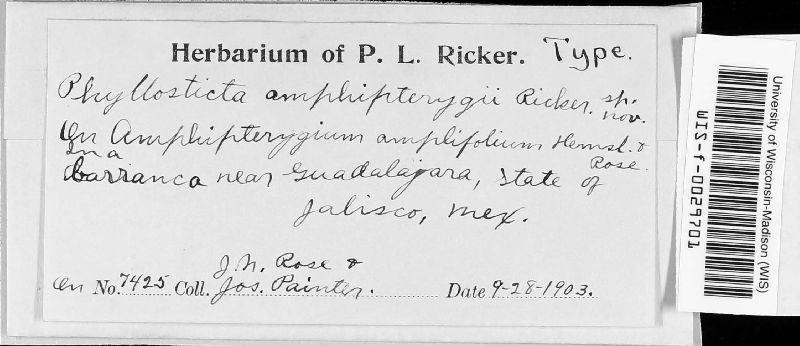 Herbarium of P. L. Ricker. Type.
Phyllosticta amphipterygii Ricker. sp. nov.
On Amphipterygium amplifolium Hemsl. & Rose.
In a barranca near Guadalajara, State of
Jalisco, Mex.
On No. 7425 Coll. J. N. Rose & Jos. Painter. Date 9-28-1903.
University of Wisconsin-Madison (WIS)
WIS-f-0029701